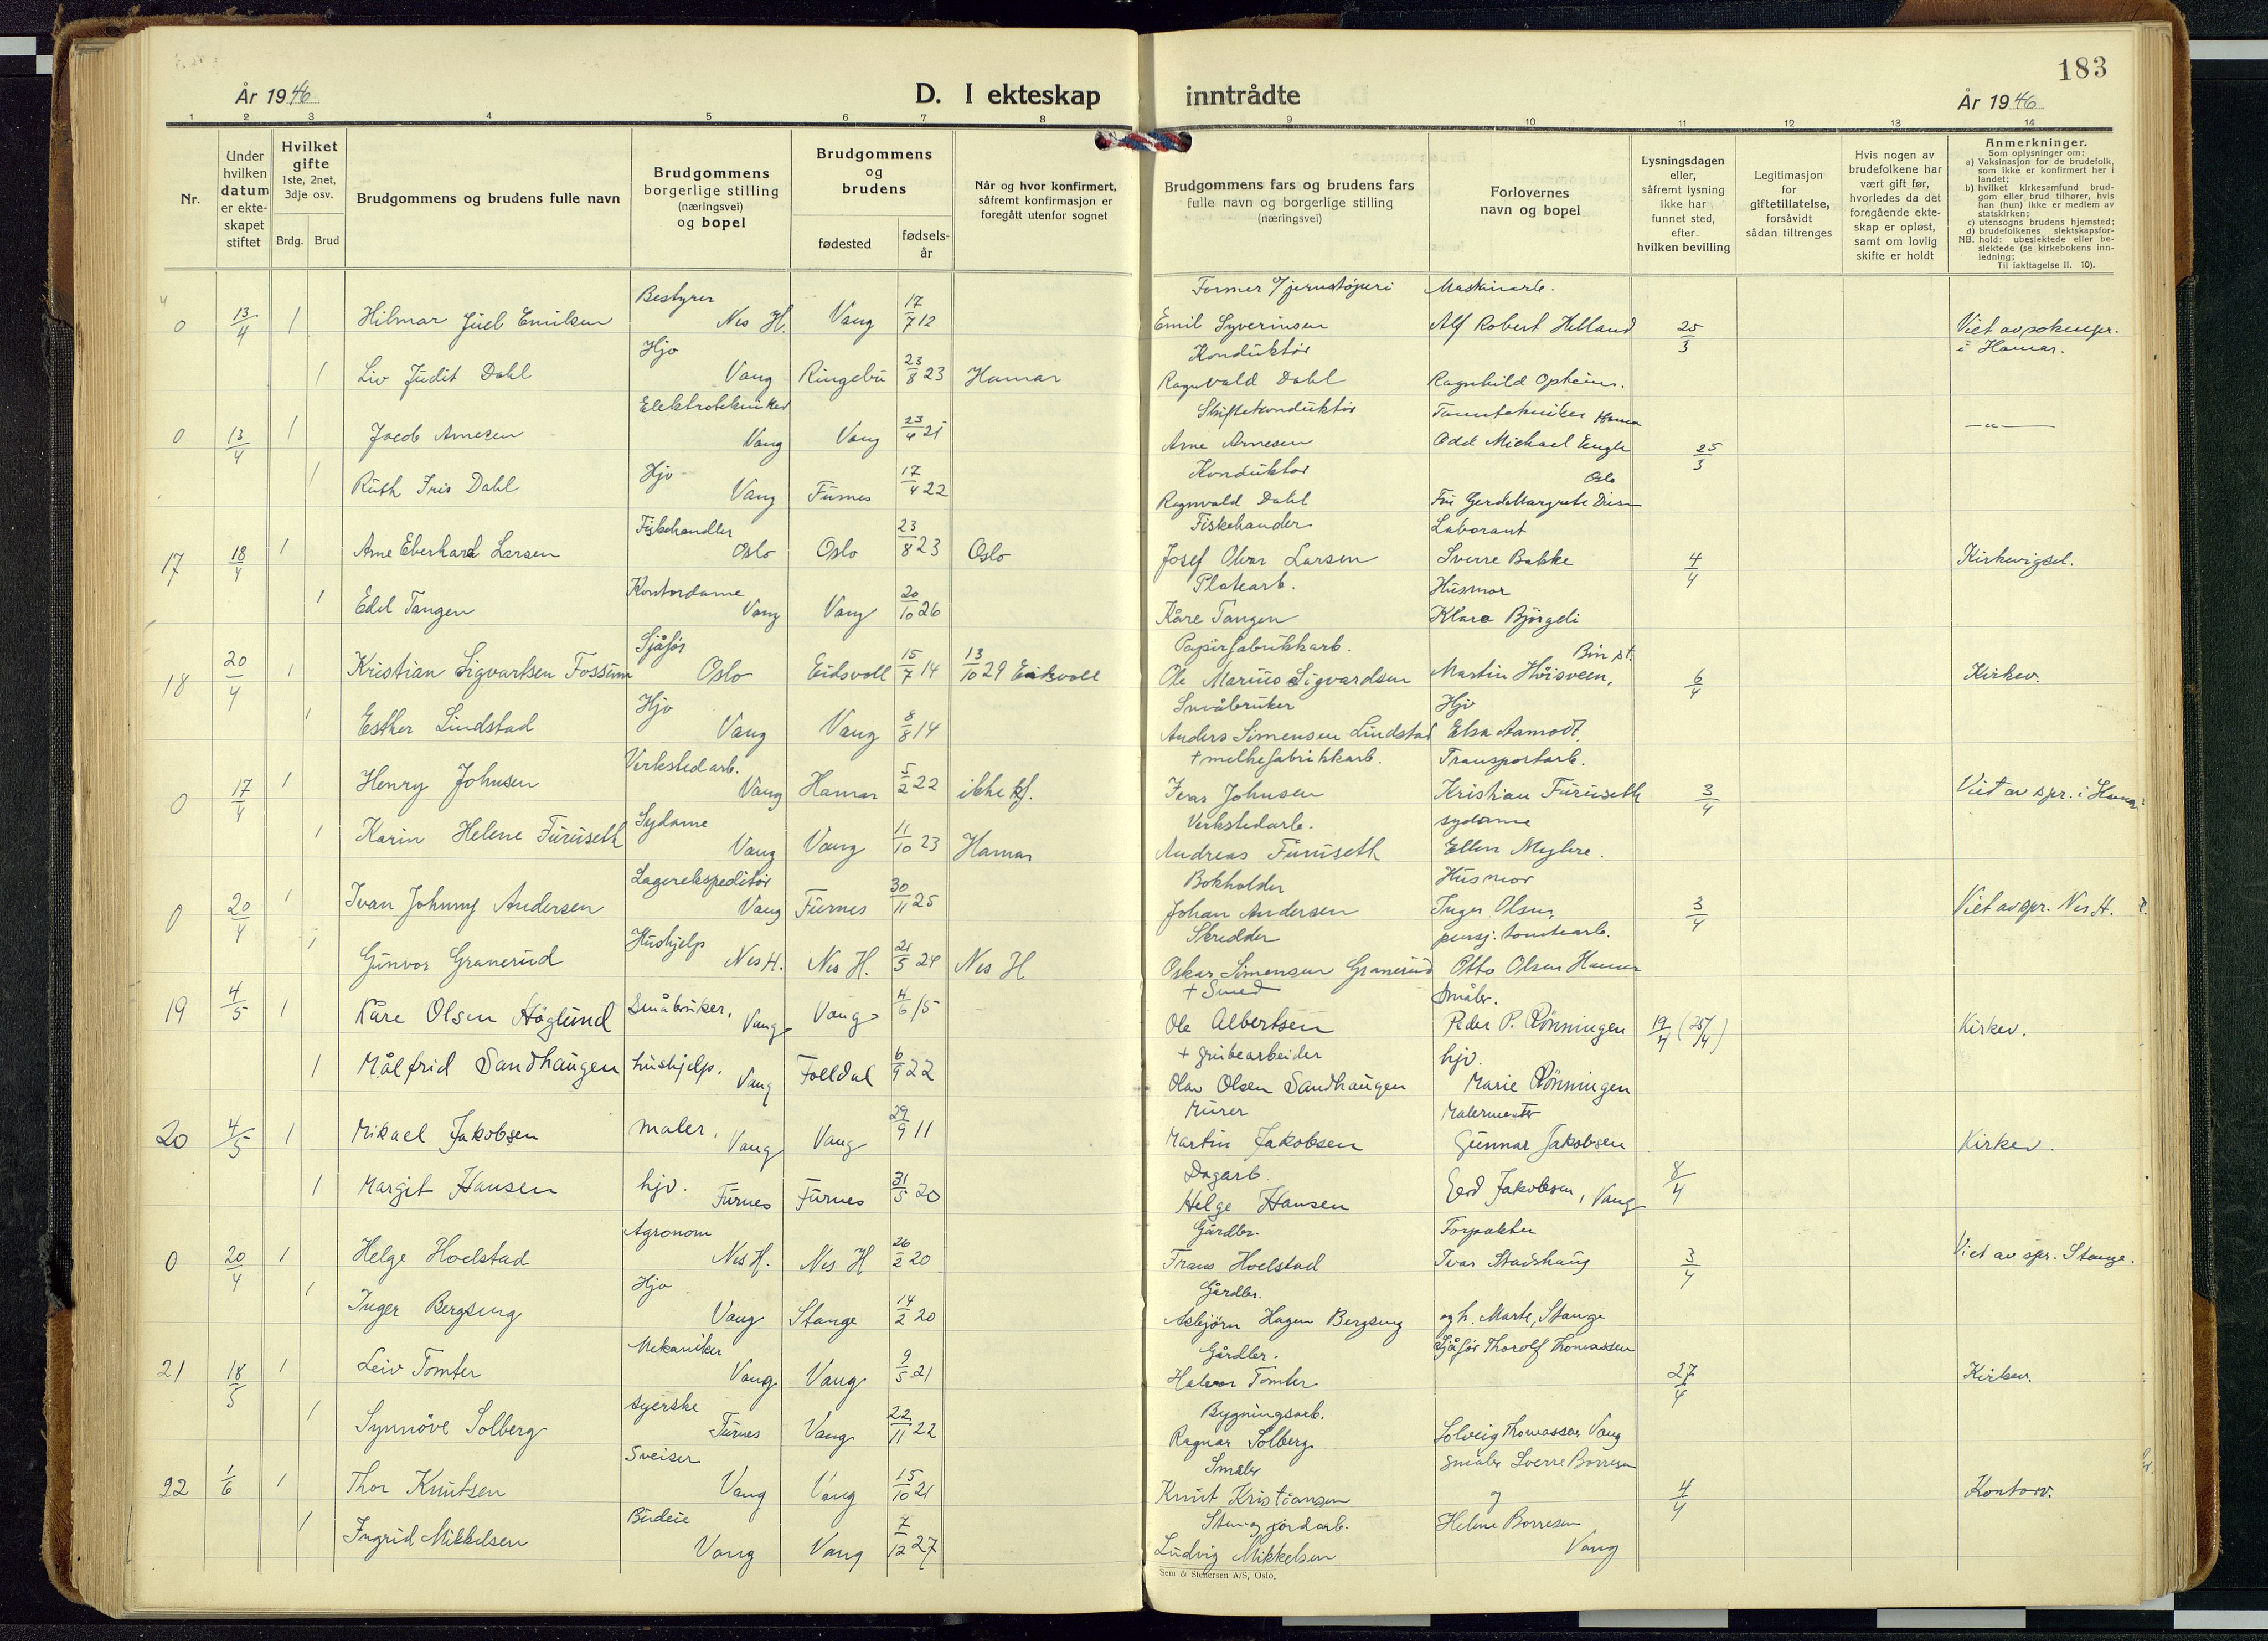 183
År 1946
D. I ekteskap inntrådte
År 1946
1 2 3 4 5 6 7 8 9 10 11 12 13 14
Nr.
Under hvilken datum er ekte-skapet stiftet
Hvilket gifte 1ste, 2net, 3dje osv.
Brdg. Brud
Brudgommens og brudens fulle navn
Brudgommens borgerlige stilling (næringsvei) og bopel
Brudgommens og brudens
fødested
fødsels-år
Når og hvor konfirmert, såfremt konfirmasjon er foregått utenfor sognet
Brudgommens fars og brudens fars fulle navn og borgerlige stilling (næringsvei)
Forlovernes navn og bopel
Lysningsdagen eller, såfremt lysning ikke har funnet sted, efter hvilken bevilling
Legitimasjon for giftetillatelse, forsåvidt sådan tiltrenges
Hvis nogen av brudefolkene har vært gift før, hvorledes da det foregående ekte-skap er opløst, samt om lovlig skifte er holdt
Anmerkninger.
Som oplysninger om:
a) Vaksinasjon for de brudefolk, som ikke er konfirmert her i landet;
b) hvilket kirkesamfund brud-gom eller brud tilhører, hvis han (hun) ikke er medlem av statskirken;
c) utensogns brudens hjemsted;
d) brudefolkenes slektskapsfor-hold: ubeslektede eller be-slektede (se kirkebokens inn-ledning;
NB.
Til iakttagelse II. 10).
Bestyrer Former v/jernstøperi Maskinarb.
0 13/4 1 Hilmar Juel Emilsen Nes H. Vang 17/7 12 Emil Syverinsen Alf Robert Helland 25/3 Viet av sokenpr. i Hamar.
Hjv Konduktør
1 Liv Judit Dahl Vang Ringebu 23/8 23 Hamar Ragnvald Dahl Ragnhild Opheim.
Elektrotekniker Skiftekonduktør Tanntekniker Hamar
0 13/4 1 Jacob Arnesen Vang Vang 23/4 21 Arne Arnesen Odd Michael Engh 25/3 —„—
Hjv Konduktør Oslo
1 Ruth Iris Dahl Vang Furnes 17/4 22 Ragnvald Dahl Fru Gerd Margrete
Fiskehandler Fiskehander Laborant
17 18/4 1 Arne Eberhard Larsen Oslo Oslo 23/8 23 Oslo Josef Olvar Larsen Sverre Bakke 4/4 Kirkevigsel.
Kontordame Platearb. Husmor
1 Edel Tangen Vang Vang 20/10 26 Kåre Tangen Klara Bjørgeli
Sjåfør Papirfabrikkarb. st.
18 20/4 1 Kristian Sigvartsen Fossum Oslo Eidsvoll 15/7 14 13/10 29 Eidsvoll Ole Marius Sigvardsen Martin Høisveen, 6/4 Kirkev.
Hjv Småbruker Hjv
1 Esther Lindstad Vang Vang 8/8 14 Anders Simensen Lindstad Elsa Aamodt.
Verkstedarb. + melkefabrikkarb. Transportarb.
0 17/4 1 Henry Johnsen Vang Hamar 5/2 22 ikke kf. Ivar Johnsen Kristian Furuseth 3/4 Viet av spr. i Hamar
Sydame Verkstedarb. sydame
1 Karin Helene Furuseth Vang Vang 11/10 23 Hamar Andreas Furuseth Ellen Myhre.
Lagerekspeditør Bokholder Husmor
0 20/4 1 Ivan Johnny Andersen Vang Furnes 30/11 25 Johan Andersen Inger Olsen, 3/4 Viet av spr. Nes H.
Hushjelp Skredder pensj. tomtearb.
1 Gunvor Granerud Nes H. Nes H. 21/5 24 Nes H Oskar Simensen Granerud Otto Olsen Hamar
+ Smed Småbr.
19 4/5 1 Kåre Olsen Høglund Småbruker, Vang Vang 4/6 15 Ole Albertsen Peder P. Rönningen 19/4 (25/4) Kirkev.
+ grubearbeider hjv.
1 Målfrid Sandhaugen hushjelp. Vang Folldal 6/9 22 Olav Olsen Sandhaugen Marie Rönningen
Murer Malermester
20 4/5 1 Mikael Jakobsen maler, Vang Vang 29/9 11 Martin Jakobsen Gunnar Jakobsen Kirkev.
Dagarb.
1 Margit Hansen hjv. Furnes Furnes 31/5 20 Helge Hansen Gerd Jakobsen, Vang 8/4
Agronom Gårdbr. Forpakter
0 20/4 1 Helge Hoelstad Nes H. Nes H 26/2 20 Frans Hoelstad Ivar Stadshaug 3/4 Viet av spr. Stange.
Hjv Gårdbr.
1 Inger Bergseng Vang Stange 14/2 20 Asbjörn Hagen Bergseng og h. Marte, Stange
Mekaniker Gårdbr. Sjåfør Thorolf Thomassen
21 18/5 1 Leiv Tomter Vang Vang 9/5 21 Halvor Tomter 27/4 Kirkev.
syerske Bygningsarb.
1 Synnöve Solberg Furnes Vang 22/11 22 Ragnar Solberg Solveig Thomassen Vang
Sveiser Småbr småbr Sverre Borresen
22 1/6 1 Thor Knutsen Vang Vang 15/10 21 Knut Kristiansen og 4/4 Kontorv.
Budeie Sten- og jordarb. Helene Borresen
1 Ingrid Mikkelsen Vang Vang 7/12 27 Ludvig Mikkelsen Vang
Sem & Stenersen A/S, Oslo.